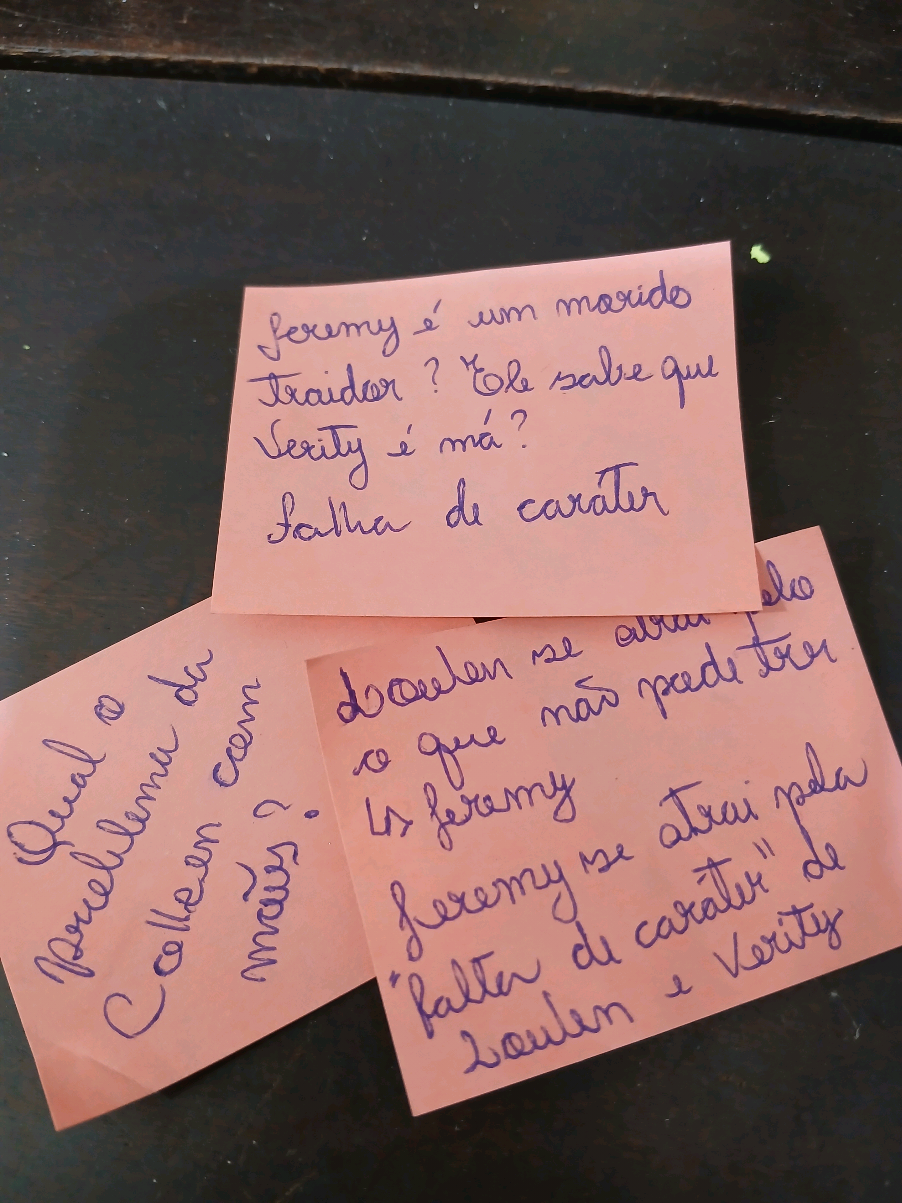 Jeremy é um marido
traidor? Ele sabe que
Verity é má?
falha de caráter
Qual o
problema da
Colleen com
mães?
Loulen se atrai pelo
o que não pode ter
↳ Jeremy
Jeremy se atrai pela
"falta de caráter" de
Loulen e Verity